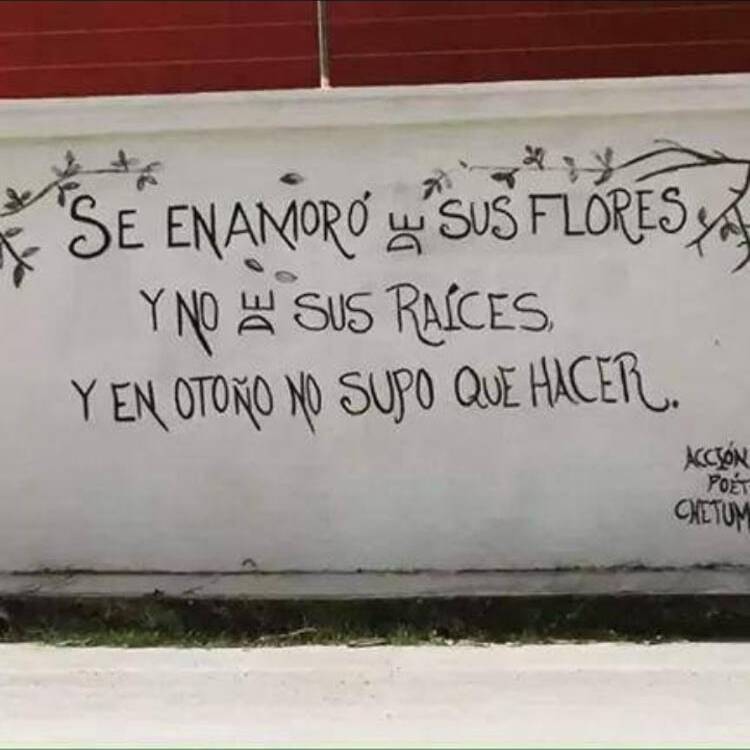 SE ENAMORÓ DE SUS FLORES
Y NO DE SUS RAÍCES,
Y EN OTOÑO NO SUPO QUE HACER.
ACCIÓN
POÉT
CHETUM